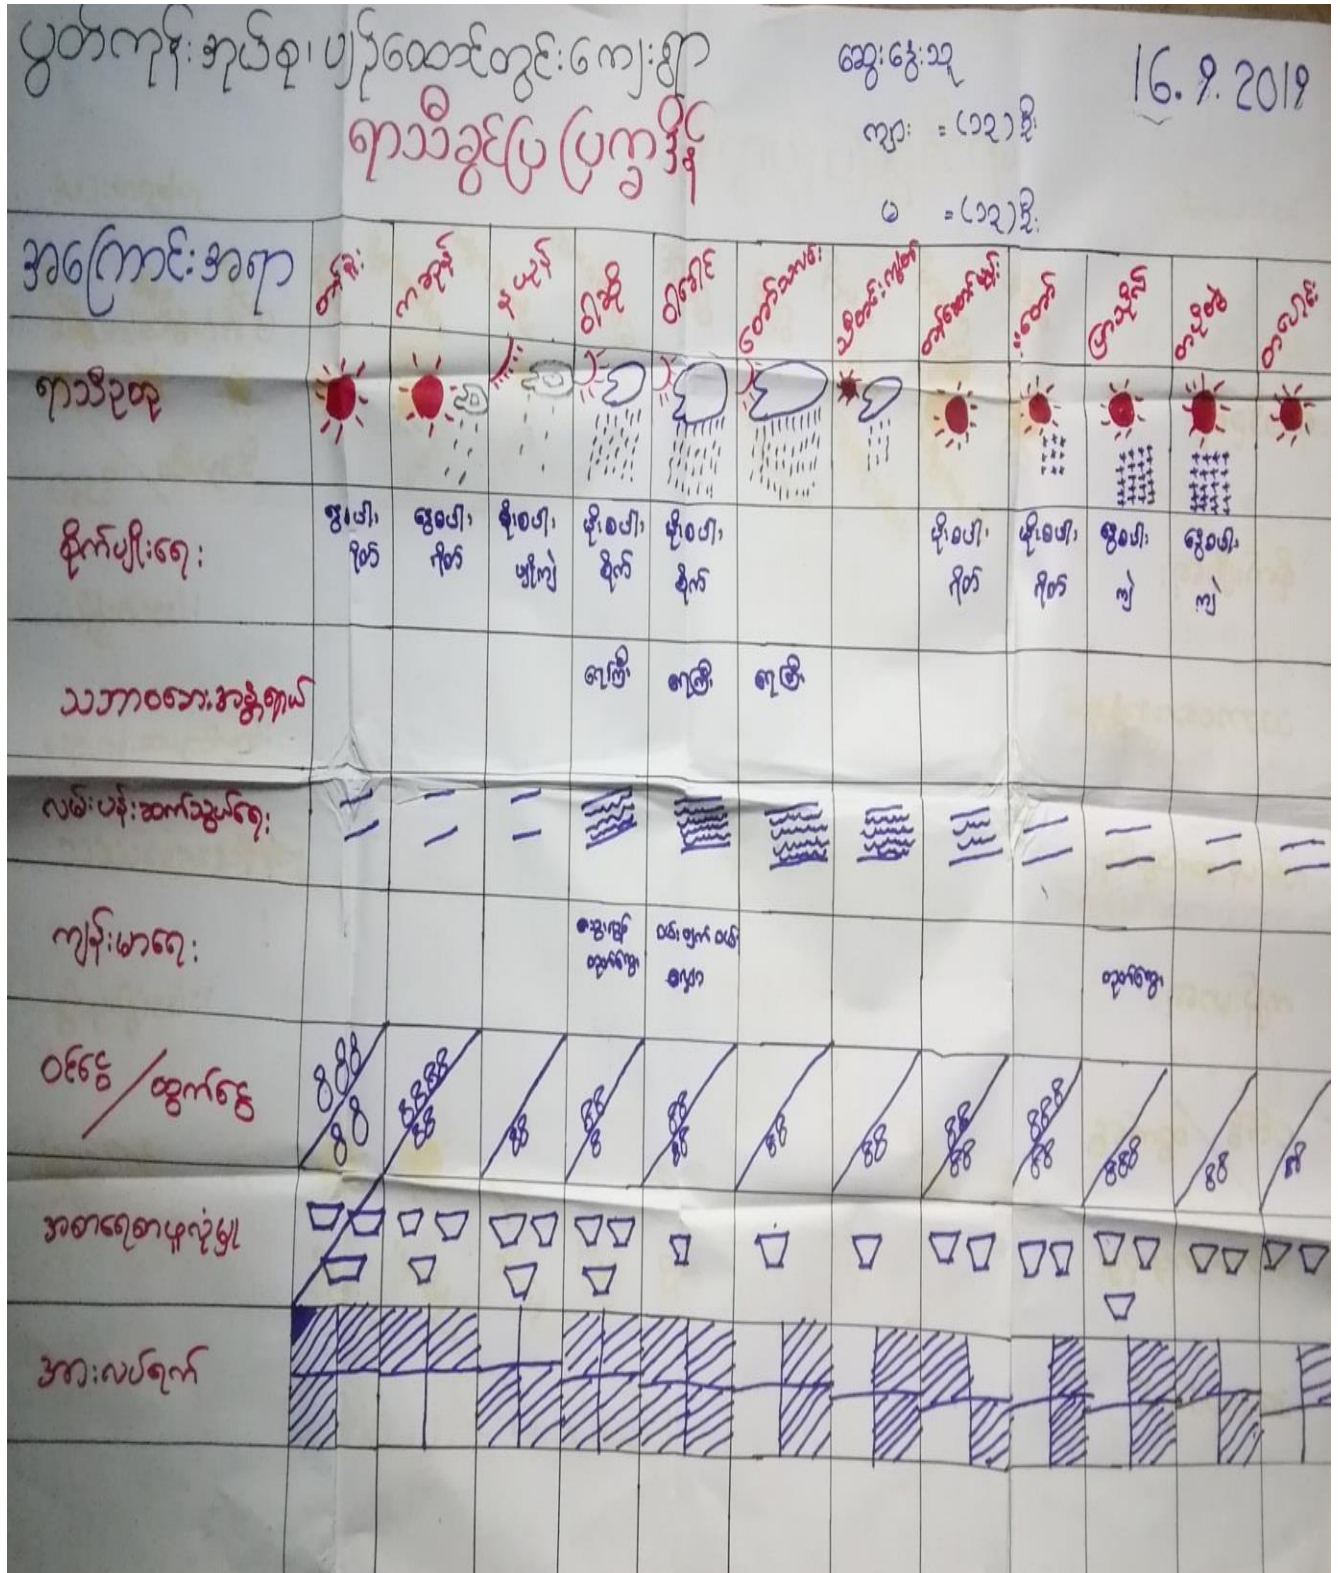 ပွတ်ကုန်းအုယ်စု၊ ပျဉ်ထောင်တွင်းကျေးရွာ
ဆွေးနွေးသူ
16.9.2019
ရာသီခွင်ပြ ပြက္ခဒိန်
ကျား = (၁၃) ဦး
မ = (၁၃) ဦး
အကြောင်းအရာ တန်ခူး ကဆုန် နယုန် ဝါဆို ဝါခေါင် တော်သလင်း သီတင်းကျွတ် တန်ဆောင်မုန်း နတ်တော် ပြာသိုလ် တပို့တွဲ တပေါင်း
ရာသီဥတု
စိုက်ပျိုးရေး နွေစပါး ရိတ် နွေစပါး ရိတ် မိုးစပါး ပျိုးကြဲ မိုးစပါး စိုက် မိုးစပါး စိုက် မိုးစပါး ရိတ် မိုးစပါး ရိတ် နွေစပါး ကြဲ နွေစပါး ကြဲ
သဘာဝဘေးအန္တရာယ် ရေကြီး ရေကြီး ရေကြီး
လမ်းပန်းဆက်သွယ်ရေး
ကျန်းမာရေး သွေးလွန် တုတ်ကွေး ဝမ်းပျက် ဝမ်းလျှော တုတ်ကွေး
ဝင်ငွေ / ထွက်ငွေ
အစာရေစာဖူလုံမှု
အားလပ်ရက်